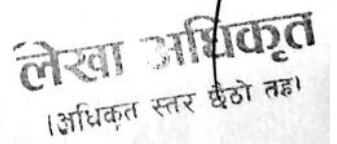 लेखा अधिकृत
।अधिकृत स्तर छैठो तह।